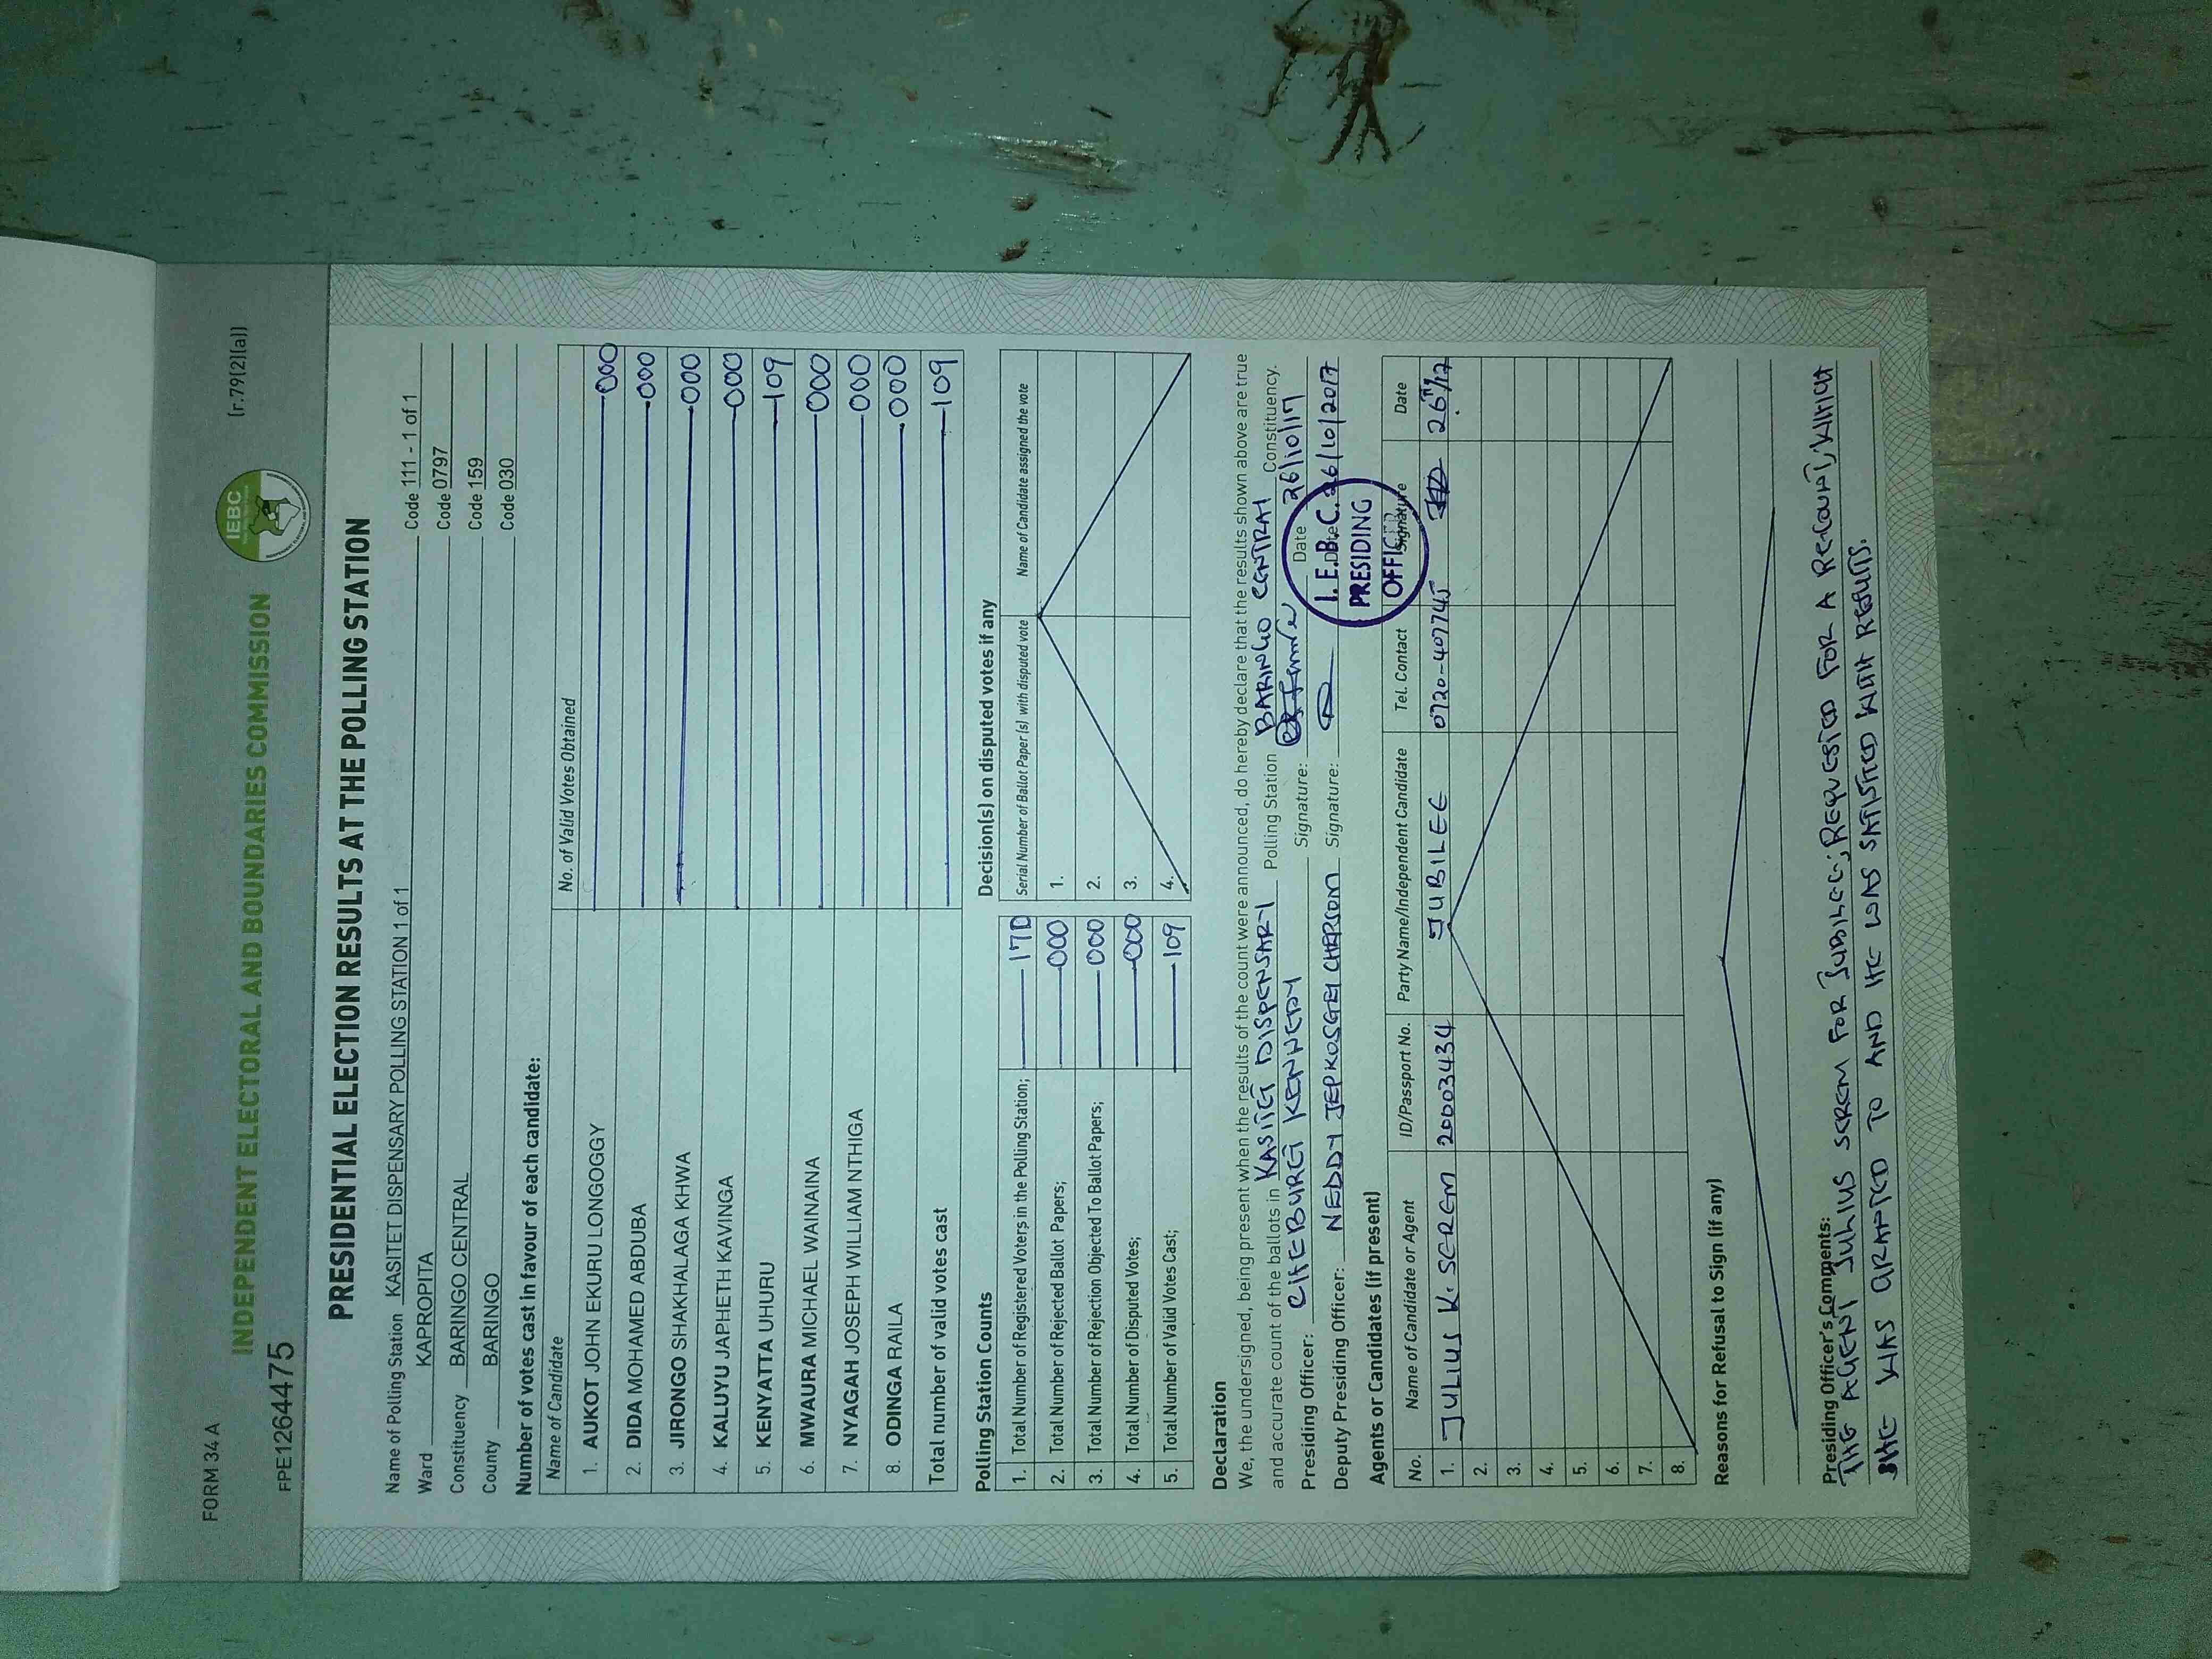 FORM 34 A
(r.79(2)(a))
IEBC
INDEPENDENT ELECTORAL AND BOUNDARIES COMMISSION
FPE1264475
PRESIDENTIAL ELECTION RESULTS AT THE POLLING STATION
Name of Polling Station KASITET DISPENSARY POLLING STATION 1 of 1 Code 111 - 1 of 1
Ward KAPROPITA Code 0797
Constituency BARINGO CENTRAL Code 159
County BARINGO Code 030
Number of votes cast in favour of each candidate:
Name of Candidate No. of Valid Votes Obtained
1. AUKOT JOHN EKURU LONGOGGY 000
2. DIDA MOHAMED ABDUBA 000
3. JIRONGO SHAKHALAGA KHWA 000
4. KALUYU JAPHETH KAVINGA 000
5. KENYATTA UHURU 109
6. MWAURA MICHAEL WAINAINA 000
7. NYAGAH JOSEPH WILLIAM NTHIGA 000
8. ODINGA RAILA 000
Total number of valid votes cast 109
Polling Station Counts
1. Total Number of Registered Voters in the Polling Station; 170
2. Total Number of Rejected Ballot Papers; 000
3. Total Number of Rejection Objected To Ballot Papers; 000
4. Total Number of Disputed Votes; 000
5. Total Number of Valid Votes Cast; 109
Decision(s) on disputed votes if any
Serial Number of Ballot Paper (s) with disputed vote Name of Candidate assigned the vote
1.
2.
3.
4.
Declaration
We, the undersigned, being present when the results of the count were announced, do hereby declare that the results shown above are true
and accurate count of the ballots in KASITET DISPENSARY Polling Station BARINGO CENTRAL Constituency.
Presiding Officer: CHEBURET KENNEDY Signature: Date 26/10/17
Deputy Presiding Officer: NEDDY JEPKOSGEI CHEPSOM Signature: Date 26/10/2017
I.E.B.C.
PRESIDING
OFFICER
Agents or Candidates (if present)
No. Name of Candidate or Agent ID/Passport No. Party Name/Independent Candidate Tel. Contact Signature Date
1. JULIUS K. SEREM 20003434 JUBILEE 0720-407745
2.
3.
4.
5.
6.
7.
8.
Reasons for Refusal to Sign (if any)
Presiding Officer's Comments:
THE AGENT JULIUS SEREM FOR JUBILEE; REQUESTED FOR A RECOUNT, WHICH
SHE WAS GRANTED TO AND HE WAS SATISFIED WITH RESULTS.